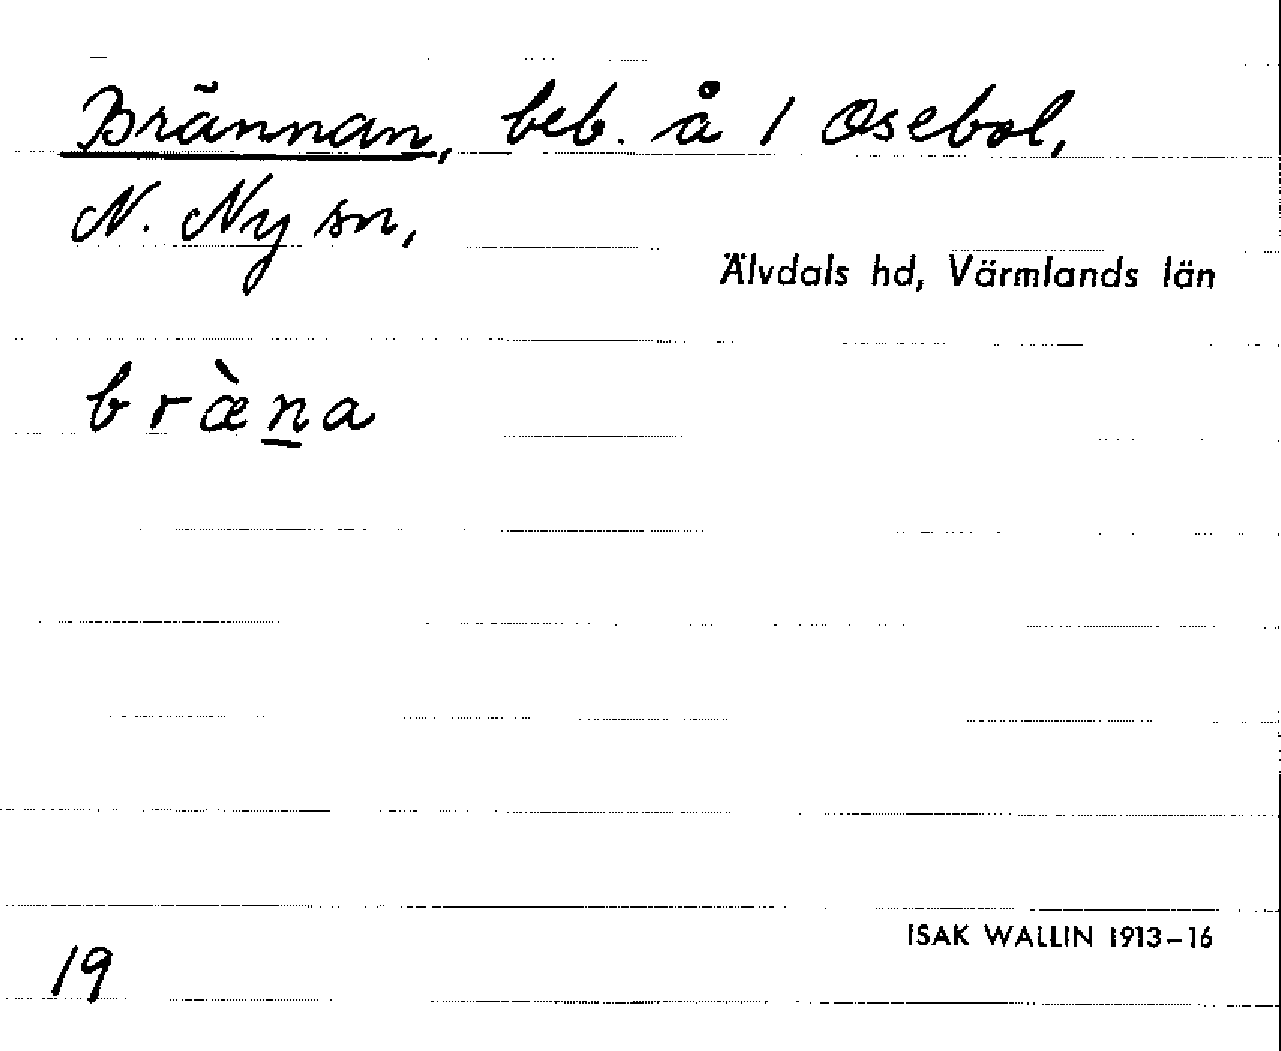 Brännan, beb. å 1 Osebol,
N. Ny sn,
Älvdals hd, Värmlands län
bræ̀n̲a
ISAK WALLIN 1913–16
19